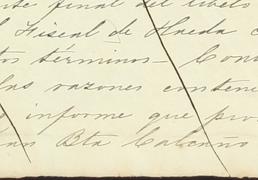 nte final del libelo
Fiscal de Haeda c
tos términos - Con
las razones contene
informe que pro
an Bta Calcaño